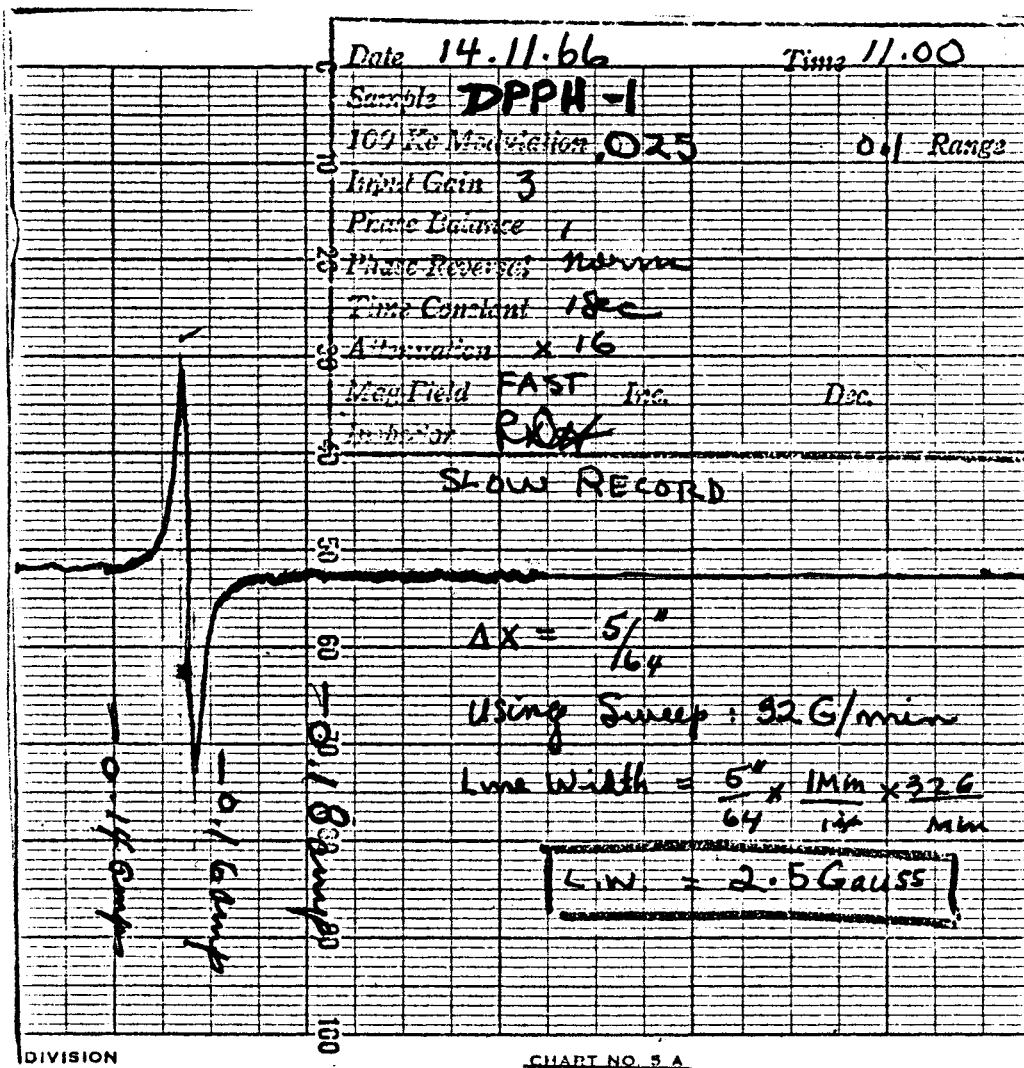 Date 14.11.66 Time 11.00
Sample DPPH-1
100 Kc Modulation .025 0.1 Range
Input Gain 3
Phase Balance 1
Phase Reversal norm
Time Constant 1 Sec
Attenuation x 16
Mag Field FAST Inc. Dec.
SLOW RECORD
ΔX = 5/64"
Using Sweep : 32 G/min
Line Width = 5"/64 x 1Min/in x 32G/Min
L.W. = 2.5 Gauss
0
10
20
30
40
50
60
70
80
90
100
— 0.14 Amps
— 0.16 Amp
— 0.18 amp
DIVISION
CHART NO. 5 A